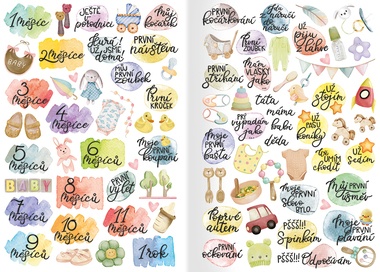 1 Měsíc
JEŠTĚ
v porodnici
Můj
kočárek
BABY
2 Měsíce
Hurá,
UŽ JSME
doma
PRVNÍ
návštěva
MŮJ
PRVNÍ
zoubek
3
Měsíce
První
KRŮČEK
4
Měsíce
5
Měsíců
6
Měsíců
Moje
PRVNÍ
koupání
BABY
7
Měsíců
8
Měsíců
PRVNÍ
výlet
9
Měsíců
10
Měsíců
11
Měsíců
1 rok
PRVNÍ
kočárkování
UŽ
piju
z lahve
PRVNÍ
ZOUBEK
PRVNÍ
stříhání
MÁM
VLÁSKY
jako
UŽ
sedím
PRY
VYPADÁM
jako
táta
máma
babi
děda
UŽ
PASU
koníky
Moje
PRVNÍ
bašta
UŽ
UMÍM
chodit
Moje
PRVNÍ
SLOVO
BYLO...
Můj PRVNÍ
úsměv
Poprvé
autem
PRVNÍ
očkování
PŠŠŠ!!
Spinkám
Moje PRVNÍ
plavání
PŠŠŠ!!
Odpočívám